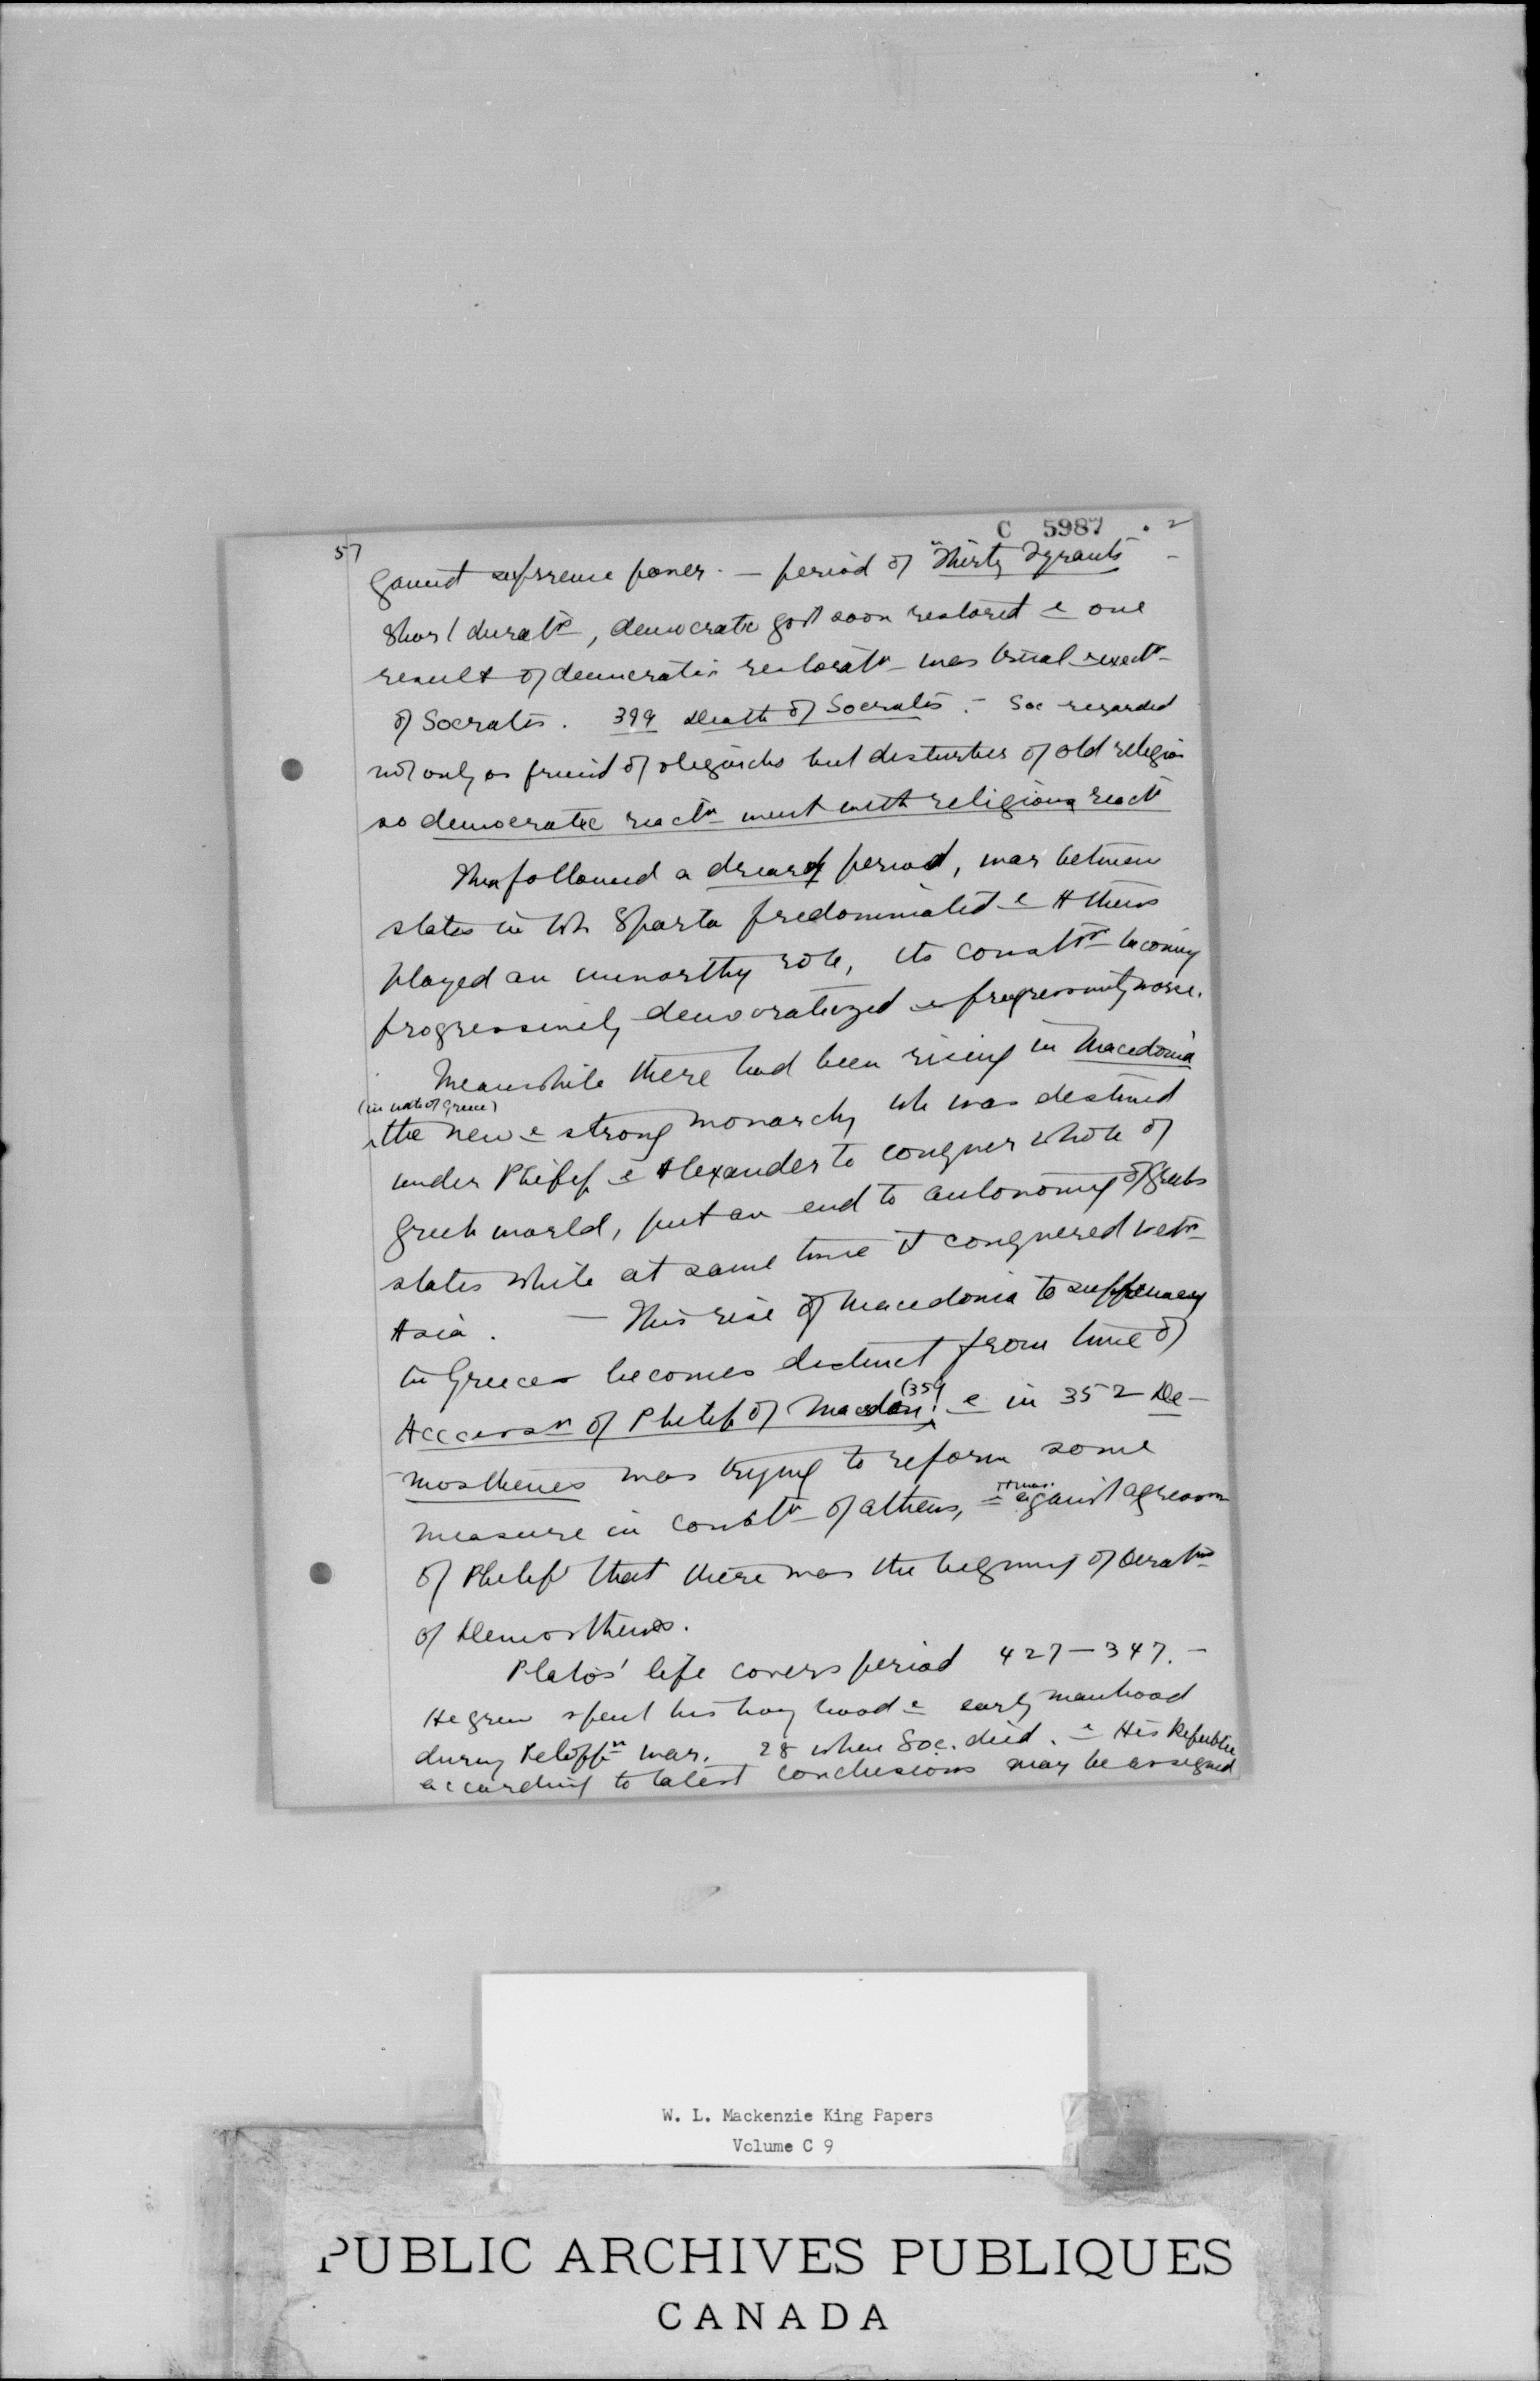 C 5987 . 2
57
gained supreme power. — period of "Thirty Tyrants" –
Short durat^n, democratic gov't soon restored & one
result of democratic restorat^n was trial & execut^n
of Socrates. 399 Death of Socrates. – Soc regarded
not only as friend of oligarchs but disturber of old religion
so democratic react^n went with religious react^n
Then followed a dreary period, war between
states in wh Sparta predominated & Athens
played an unworthy role, its constit^n becoming
progressively democratized & progressively worse.
Meanwhile there had been rising in Macedonia
(in north of Greece)
the new & strong monarchy wh was destined
under Philip & Alexander to conquer whole of
Greek world, put an end to autonomy of Greek
states while at same time it conquered
Asia. — This rise of Macedonia to supremacy
in Greece becomes distinct from time of
Access^n of Philip of Macedon (359) & in 352 De–
mosthenes was trying to reform some
measure in constit^n of Athens, & it was against agression
of Philip that there was the beginning of Orat^ns
of Demosthenes.
Plato's life covers period 427 – 347. –
He grew spent his boyhood & early manhood
during Pelopp^n war. 28 when Soc. died. & His Republic
according to latest conclusions may be assigned
W. L. Mackenzie King Papers
Volume C 9
PUBLIC ARCHIVES PUBLIQUES
CANADA